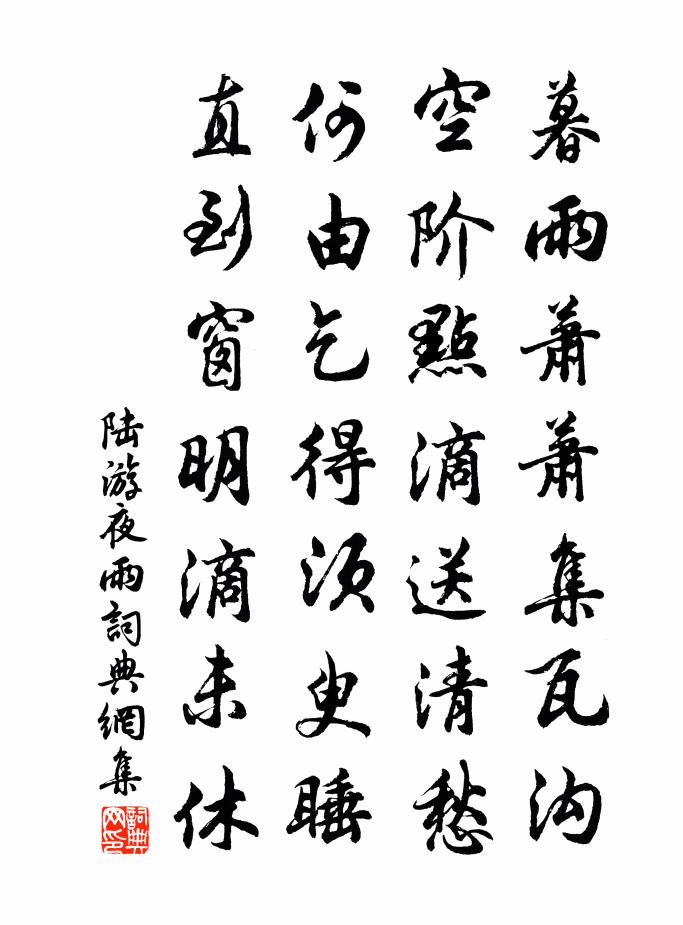 暮雨蕭蕭集瓦沟
空阶點滴送清愁
何由乞得须臾睡
直到窗明滴未休
陆游夜雨詞典網集
詞典网印